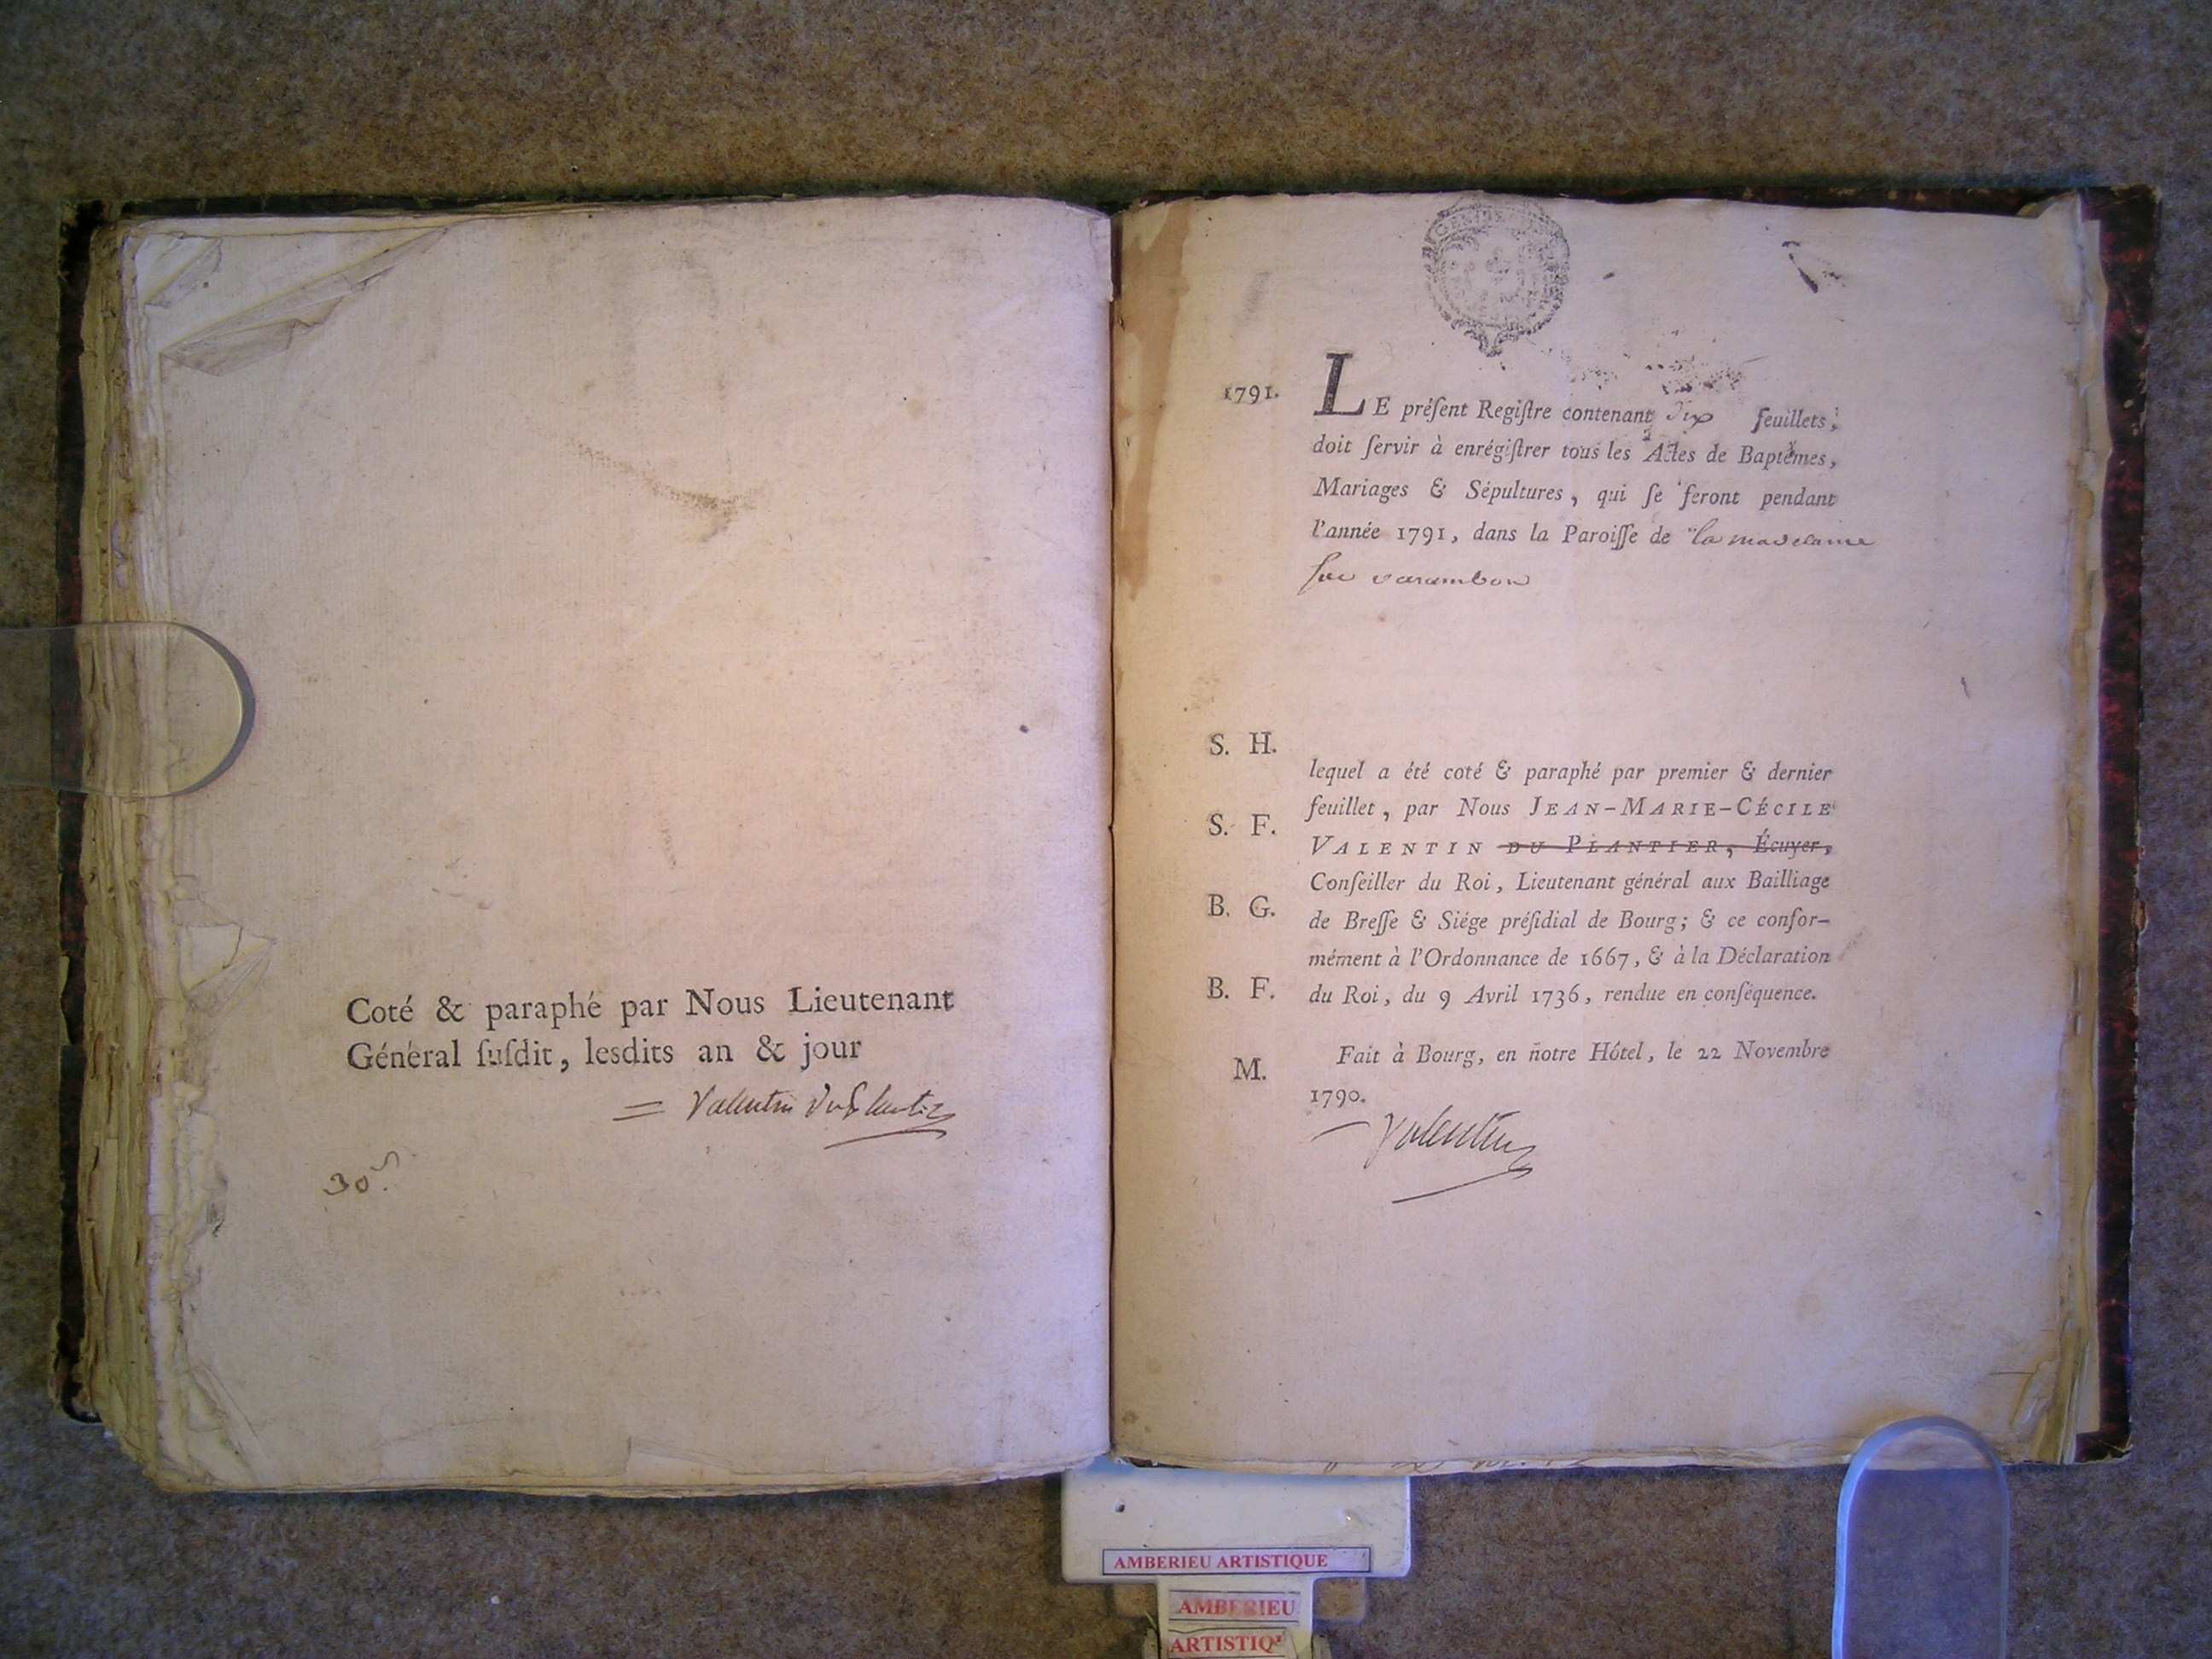 Coté & paraphé par Nous Lieutenant
Général ſuſdit, lesdits an & jour
Valentin duplantier
30ˢ
1791.
LE préſent Regiſtre contenant dix feuillets,
doit ſervir à enrégiſtrer tous les Actes de Baptêmes,
Mariages & Sépultures, qui ſe feront pendant
l'année 1791, dans la Paroiſſe de la madelaine
ſur varambon
S. H.
lequel a été coté & paraphé par premier & dernier
feuillet, par Nous JEAN-MARIE-CÉCILE
S. F.
VALENTIN DU PLANTIER, Écuyer,
Conſeiller du Roi, Lieutenant général aux Bailliage
B. G.
de Breſſe & Siége préſidial de Bourg; & ce confor-
mément à l'Ordonnance de 1667, & à la Déclaration
B. F.
du Roi, du 9 Avril 1736, rendue en conſéquence.
Fait à Bourg, en notre Hôtel, le 22 Novembre
M.
1790.
Valentin
AMBERIEU ARTISTIQUE
AMBERIEU
ARTISTIQ